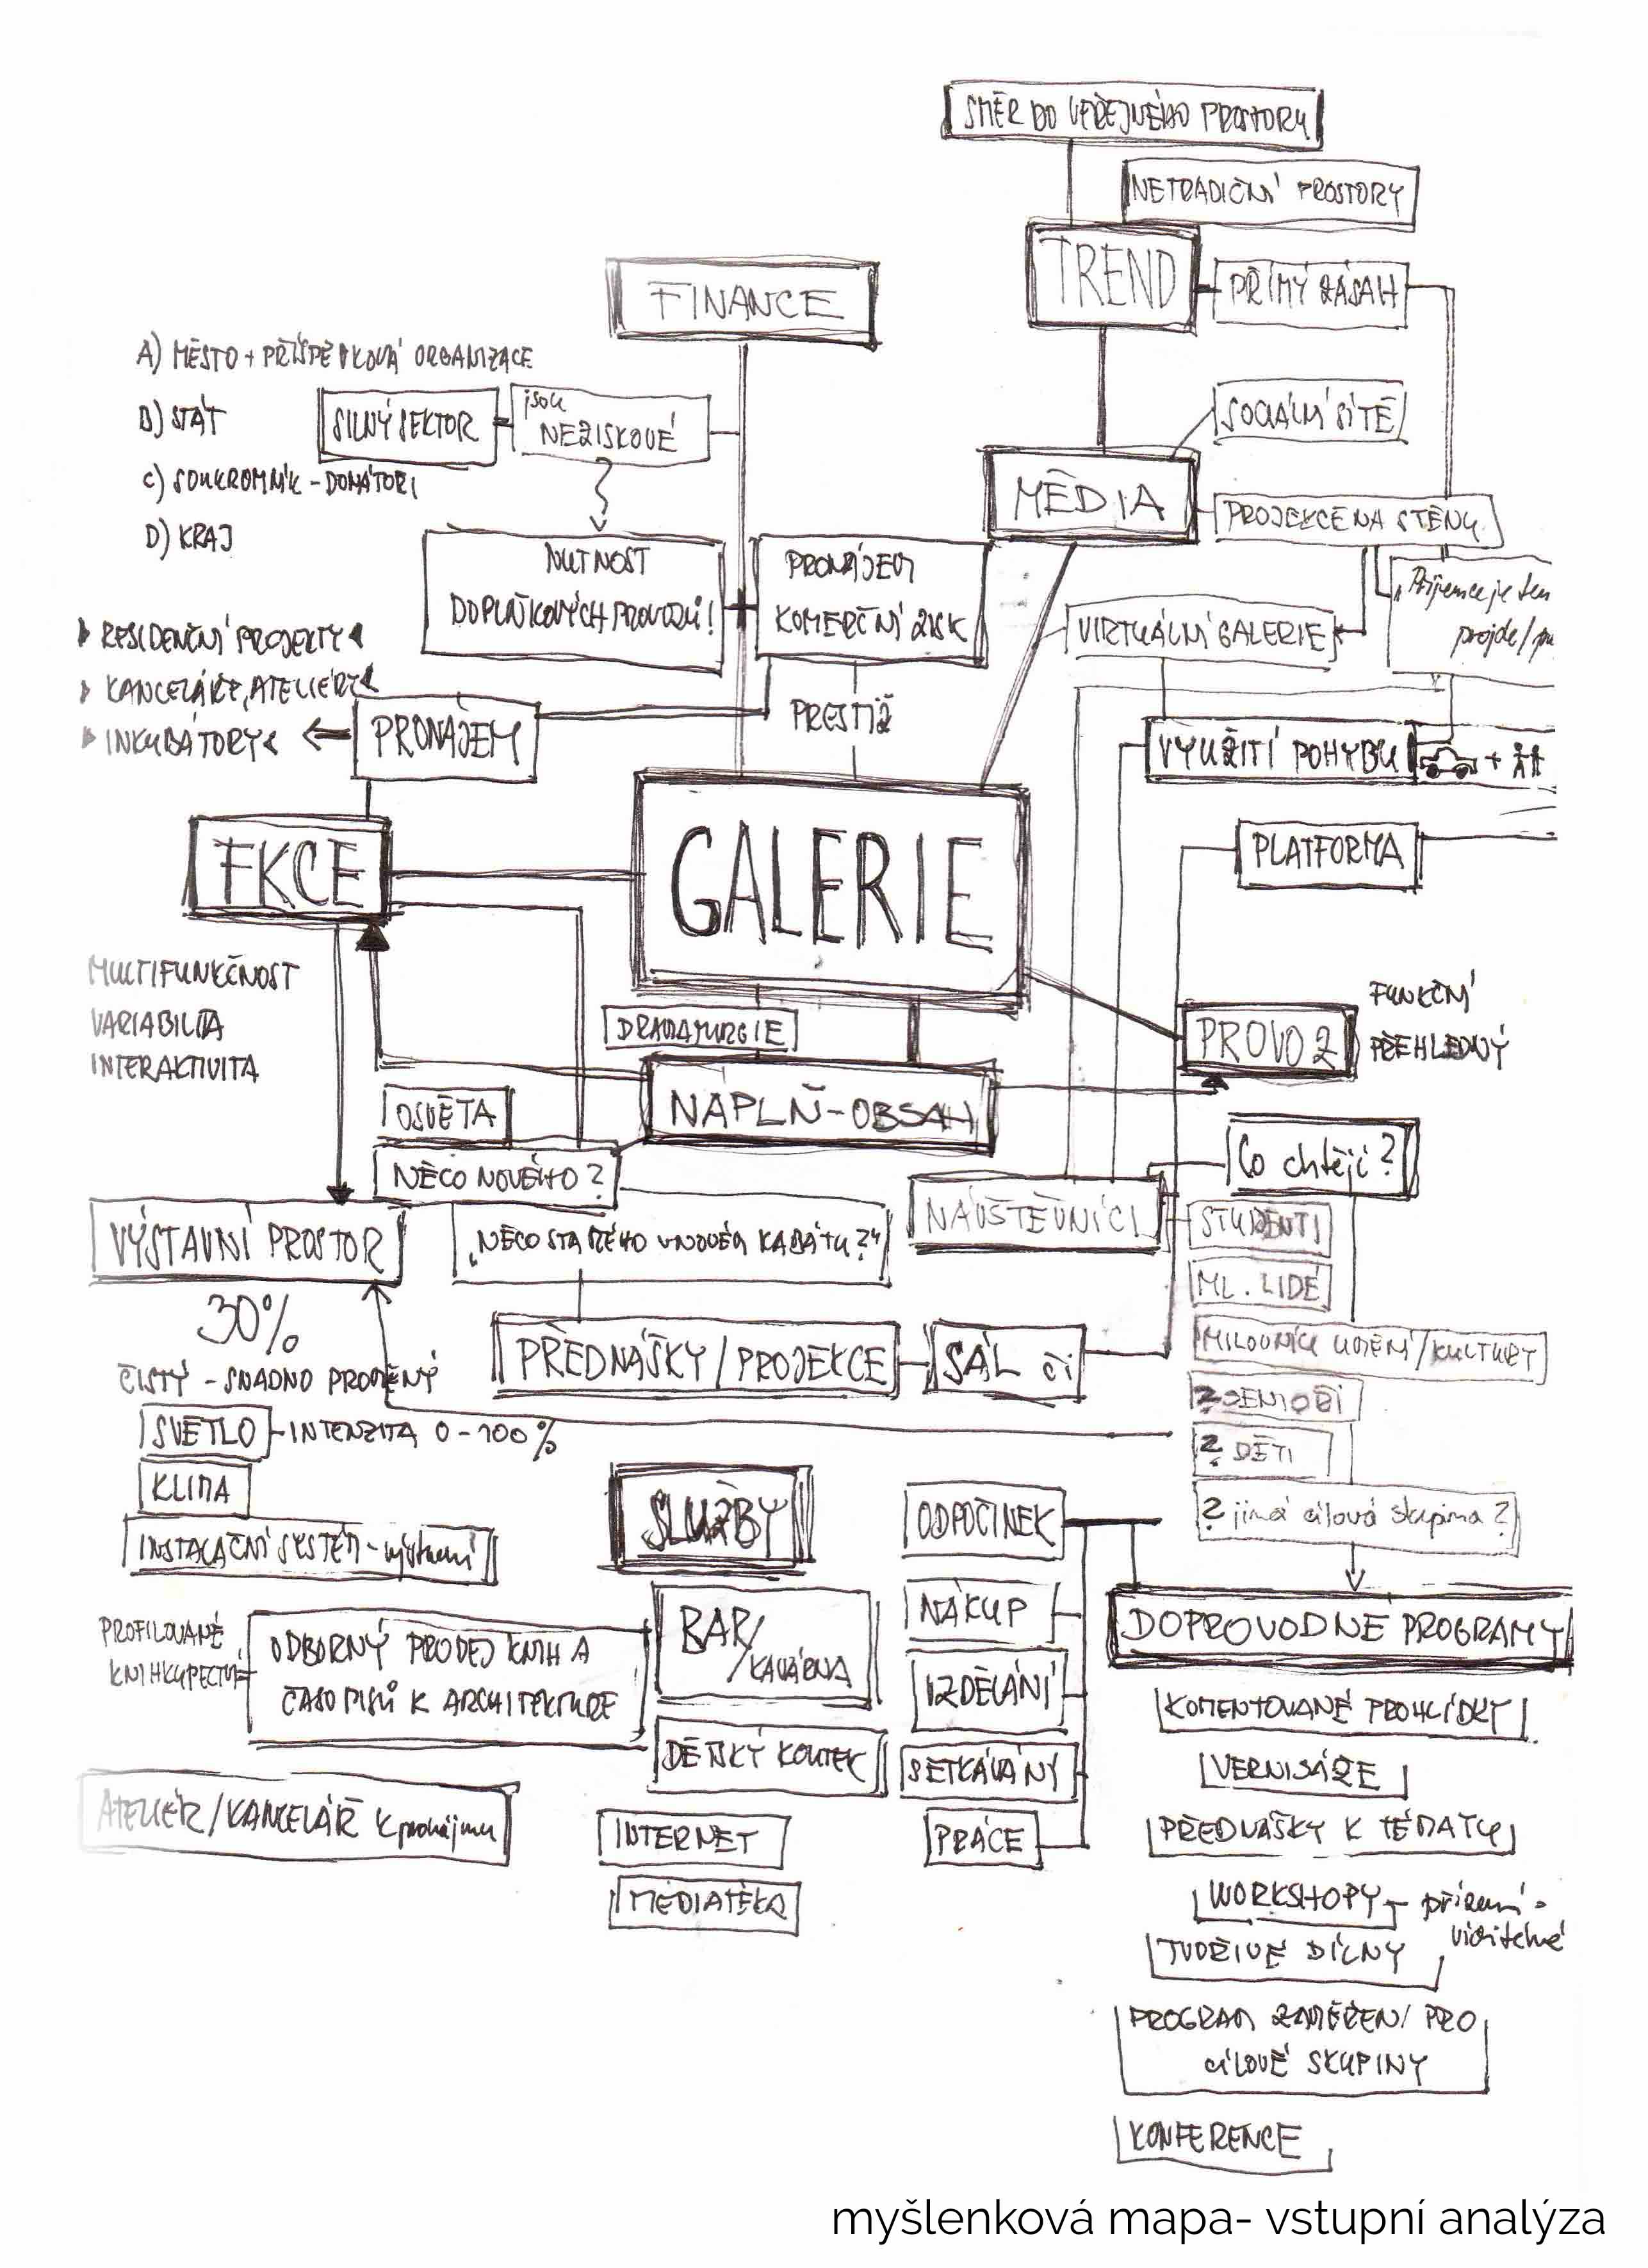 SMĚR DO VEŘEJNÉHO PROSTORU
NETRADIČNÍ PROSTORY
TREND
PŘÍMÝ ZÁSAH
FINANCE
A) MĚSTO + PŘÍSPĚVKOVÁ ORGANIZACE
B) STÁT
SILNÝ SEKTOR
jsou
NEZISKOVÉ
C) SOUKROMNÍK - DONÁTOŘI
D) KRAJ
SOCIÁLNÍ SÍTĚ
MÉDIA
PROJEKCE NA STĚNU
NUTNOST
DOPLŇKOVÝCH PROVOZŮ!
PRONÁJEM
KOMERČNÍ ZISK
„Příjemce je ten
projde/
VIRTUÁLNÍ GALERIE
RESIDENČNÍ PROJEKTY
KANCELÁŘE, ATELIÉRY
INKUBÁTORY
PRONÁJEM
PRESTIŽ
VYUŽITÍ POHYBU
+
PLATFORMA
FKCE
GALERIE
MULTIFUNKČNOST
VARIABILITA
INTERAKTIVITA
DRAMATURGIE
PROVOZ
FUNKČNÍ
PŘEHLEDNÝ
NÁPLŇ-OBSAH
OSVĚTA
NĚCO NOVÉHO?
Co chtějí?
NÁVŠTĚVNÍCI
VÝSTAVNÍ PROSTOR
„NĚCO STARÉHO V NOVÉM KABÁTU?“
STUDENTI
ML. LIDÉ
30%
PŘEDNÁŠKY/PROJEKCE
SÁL či
MILOVNÍCI UMĚNÍ/KULTURY
ČISTÝ - SNADNO PROMĚNÝ
? SENIOŘI
SVĚTLO - INTENZITA 0-100%
? DĚTI
KLIMA
SLUŽBY
ODPOČINEK
? jiná cílová skupina?
INSTALAČNÍ SYSTÉM - výstavní
BAR/
KAVÁRNA
NÁKUP
DOPROVODNÉ PROGRAMY
PROFILOVANÉ
KNIHKUPECTVÍ
ODBORNÝ PRODEJ KNIH A
ČASOPISŮ K ARCHITEKTUŘE
VZDĚLÁNÍ
KOMENTOVANÉ PROHLÍDKY
DĚTSKÝ KOUTEK
SETKÁVÁNÝ
VERNISÁŽE
ATELIÉR/KANCELÁŘ K pronájmu
INTERNET
PRÁCE
PŘEDNÁŠKY K TÉMATU
MEDIATÉKA
WORKSHOPY -
viditelné
TVOŘIVÉ DÍLNY
PROGRAM ZAMĚŘENÍ PRO
CÍLOVÉ SKUPINY
KONFERENCE
myšlenková mapa- vstupní analýza